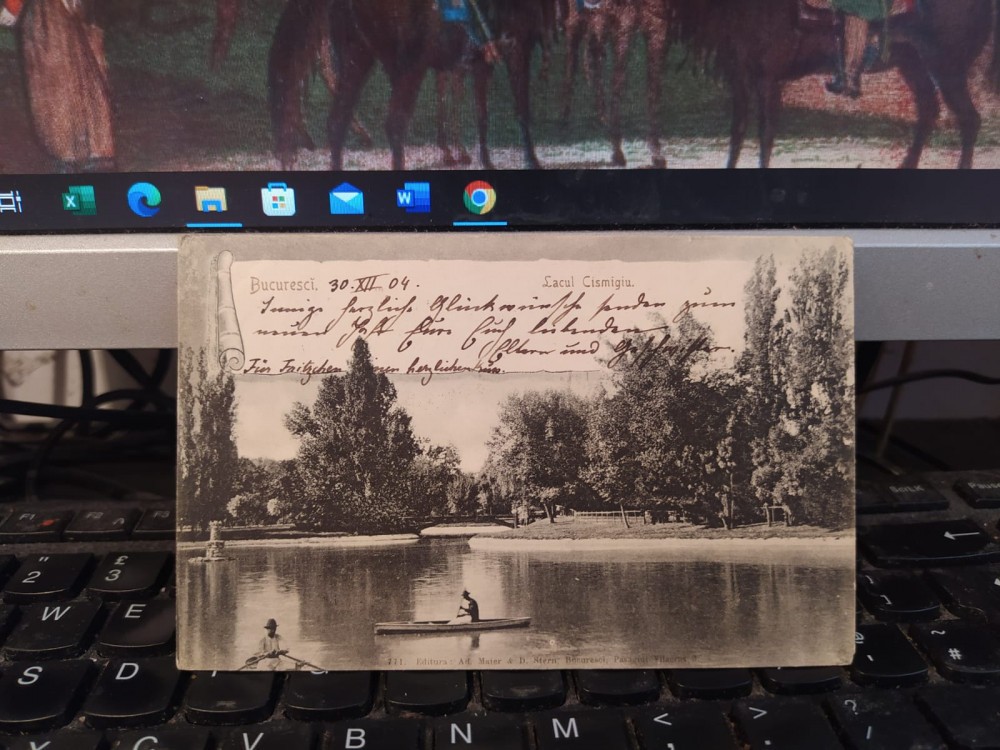 Bucuresci. 30.XII 04. Lacul Cismigiu.
Innige herzliche Glückwünsche senden zum
neuen Jahr Eure Euch liebenden
Eltern und Geschwister.
Für Fritzchen einen herzlichen
711. Editura Ad. Maier & D. Stern, Bucuresci, Pasagiul Vilacros
X
W
F1
F2
F3
" 2
£ 3
W
E
S
D
X
C
V
B
N
M
<
>
?
@
~ #
Pause